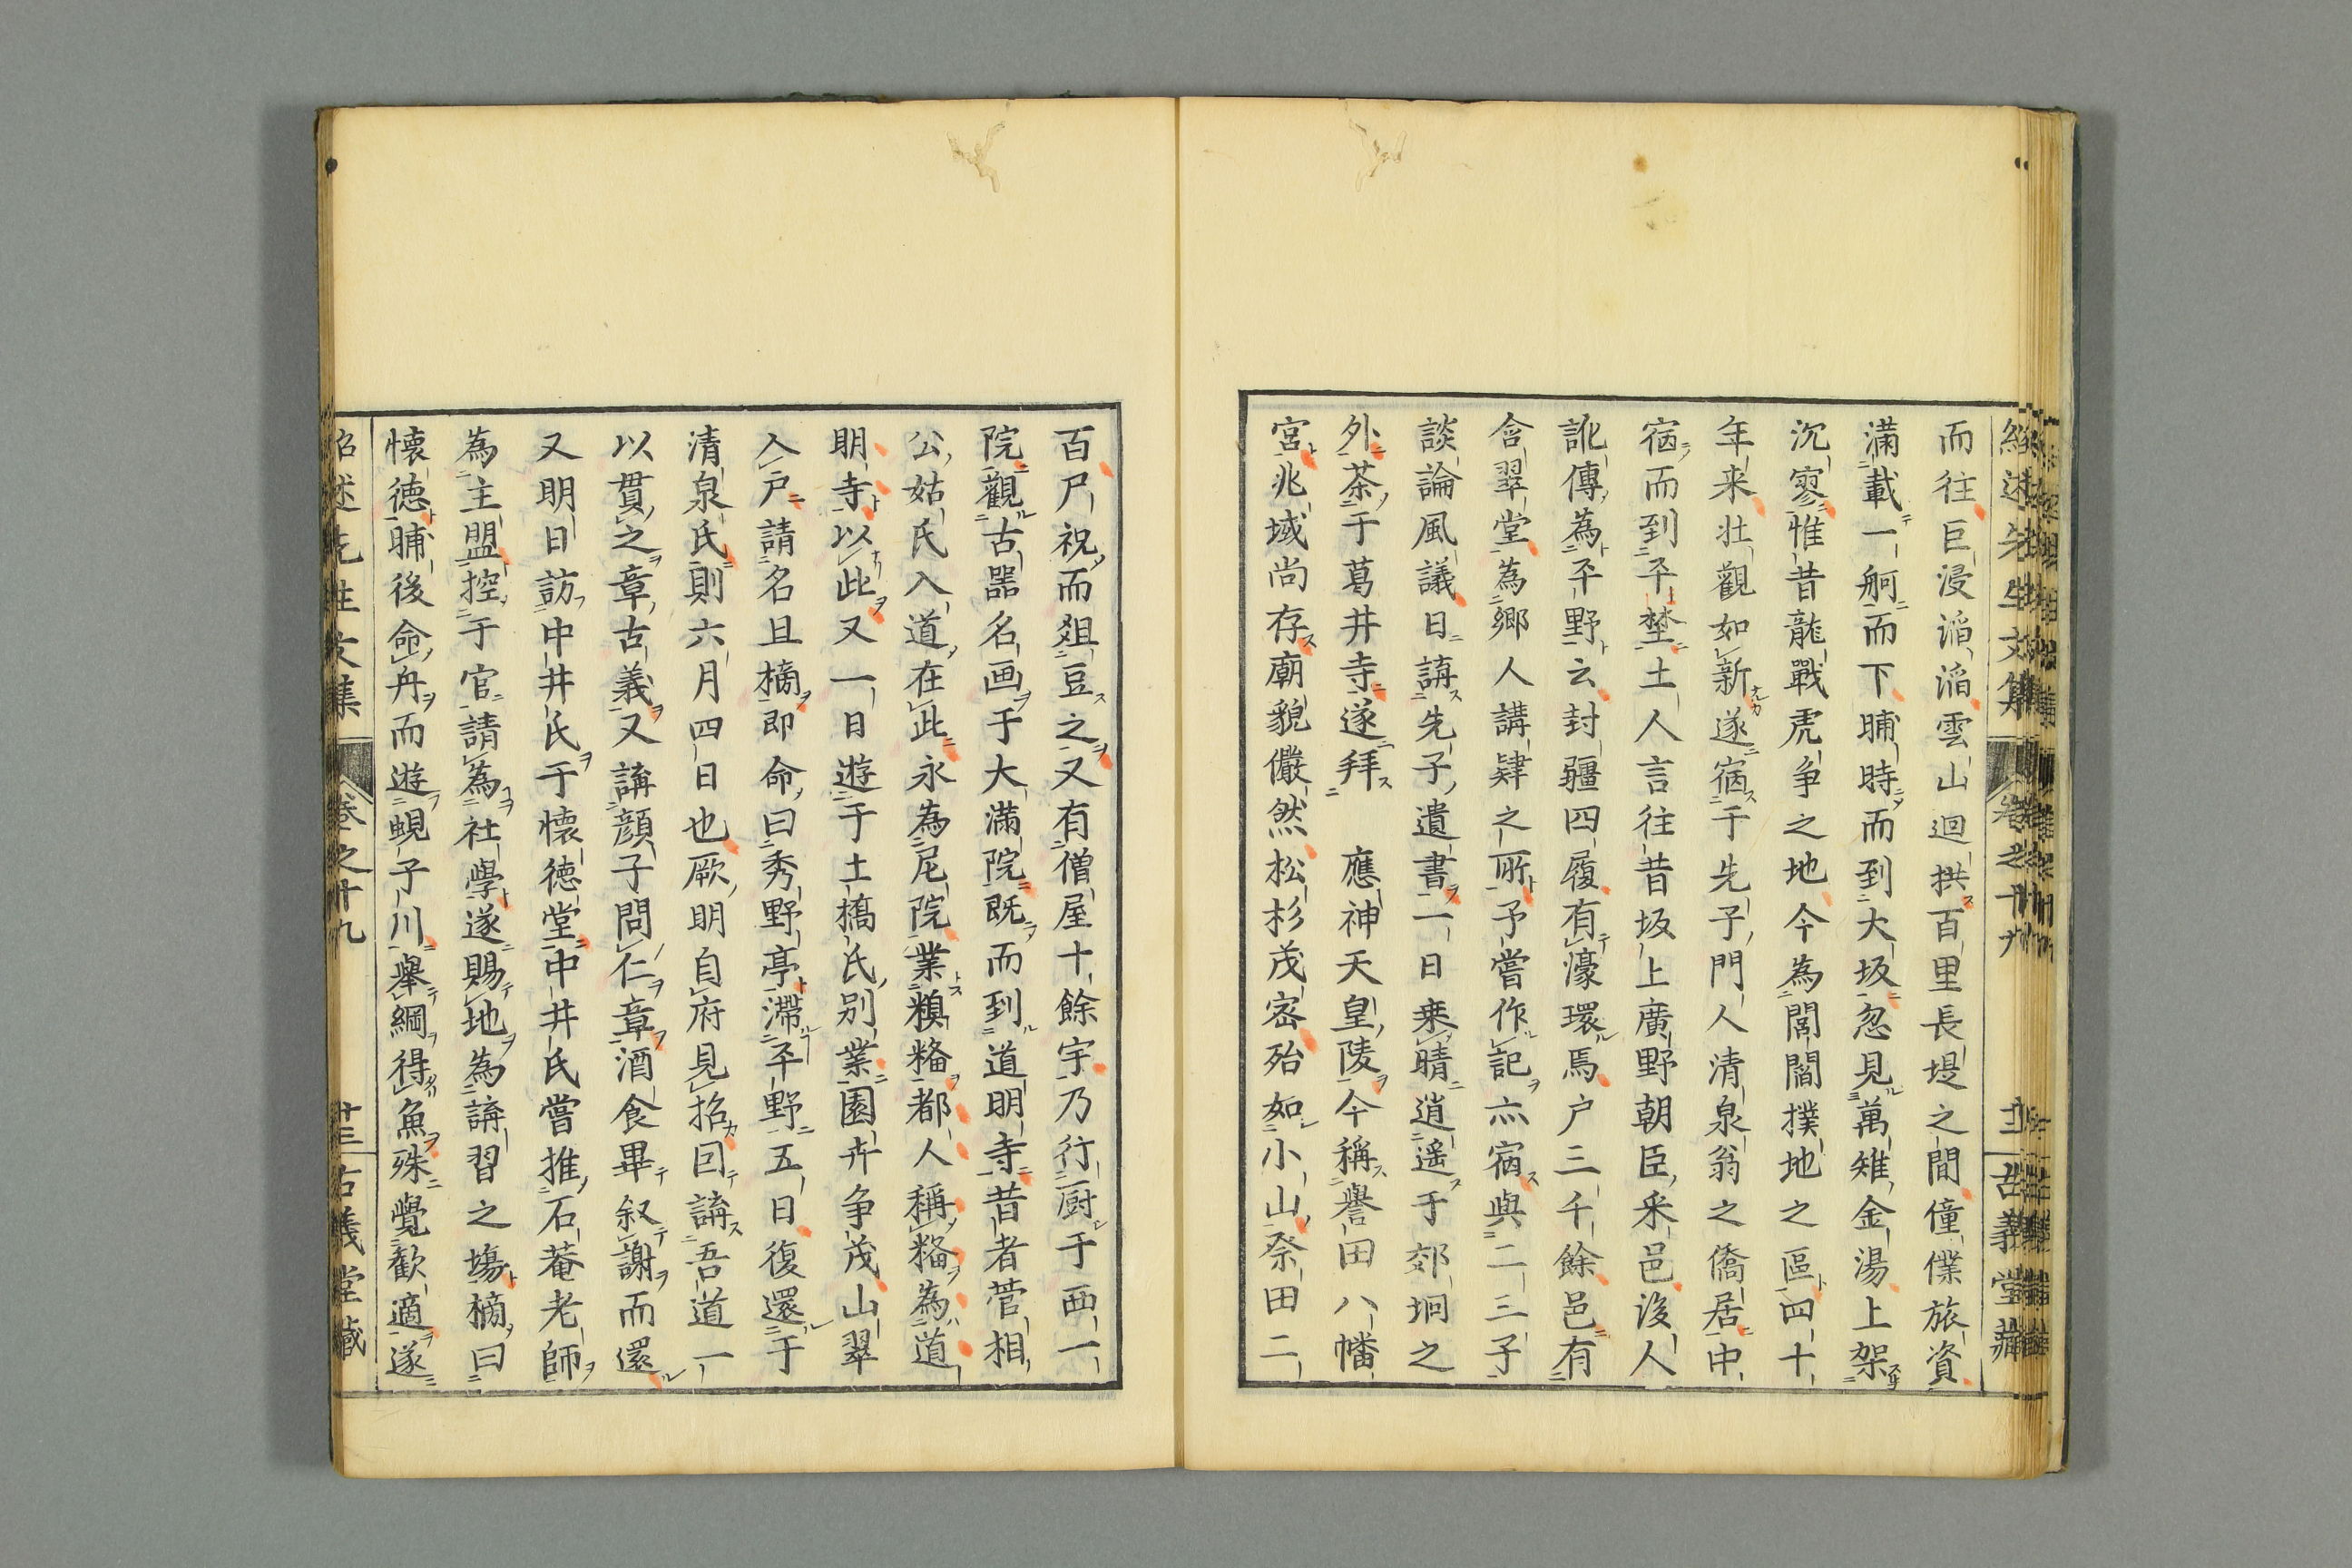 而往巨浸滔滔雲山迴拱百里長堤之間僮僕旅資
滿載一舸而下晡時而到大坂忽見萬雉金湯上架
沉寥惟昔龍戰虎争之地今為閭閻撲地之區四十
年来壮觀如新遂宿于先子門人清泉翁之僑居中
宿而到平埜土人言往昔坂上廣野朝臣采邑後人
訛傳為平野云封疆四履有濠環焉户三千餘邑有
含翠堂為鄉人講肄之所予嘗作記亦宿與二三子
談論風議日講先子遺書一日乗晴逍遥于郊坰之
外茶于葛井寺遂拜 應神天皇陵今稱譽田八幡
宮兆域尚存廟貌儼然松杉茂密殆如小山祭田二
百尸祝而爼豆之又有僧屋十餘宇乃行厨于西一
院觀古噐名画于大滿院既而到道明寺昔者菅相
公姑氏入道在此永為尼院業糗糒都人稱糒為道
明寺以此又一日遊于土橋氏別業園卉争茂山翠
入户請名且榜即命曰秀野亭滯平野五日復還于
清泉氏則六月四日也厥明自府見招回講吾道一
以貫之章古義又講顔子問仁章酒食畢叙謝而還
又明日訪中井氏于懷德堂中井氏嘗推石菴老師
為主盟控于官請為社學遂賜地為講習之塲榜曰
懐徳晡後命舟而遊蜆子川舉網得魚殊覺歓適遂
紹述先生文集 卷之十九 古義堂藏
紹述先生文集 卷之十九 十三 古義堂藏